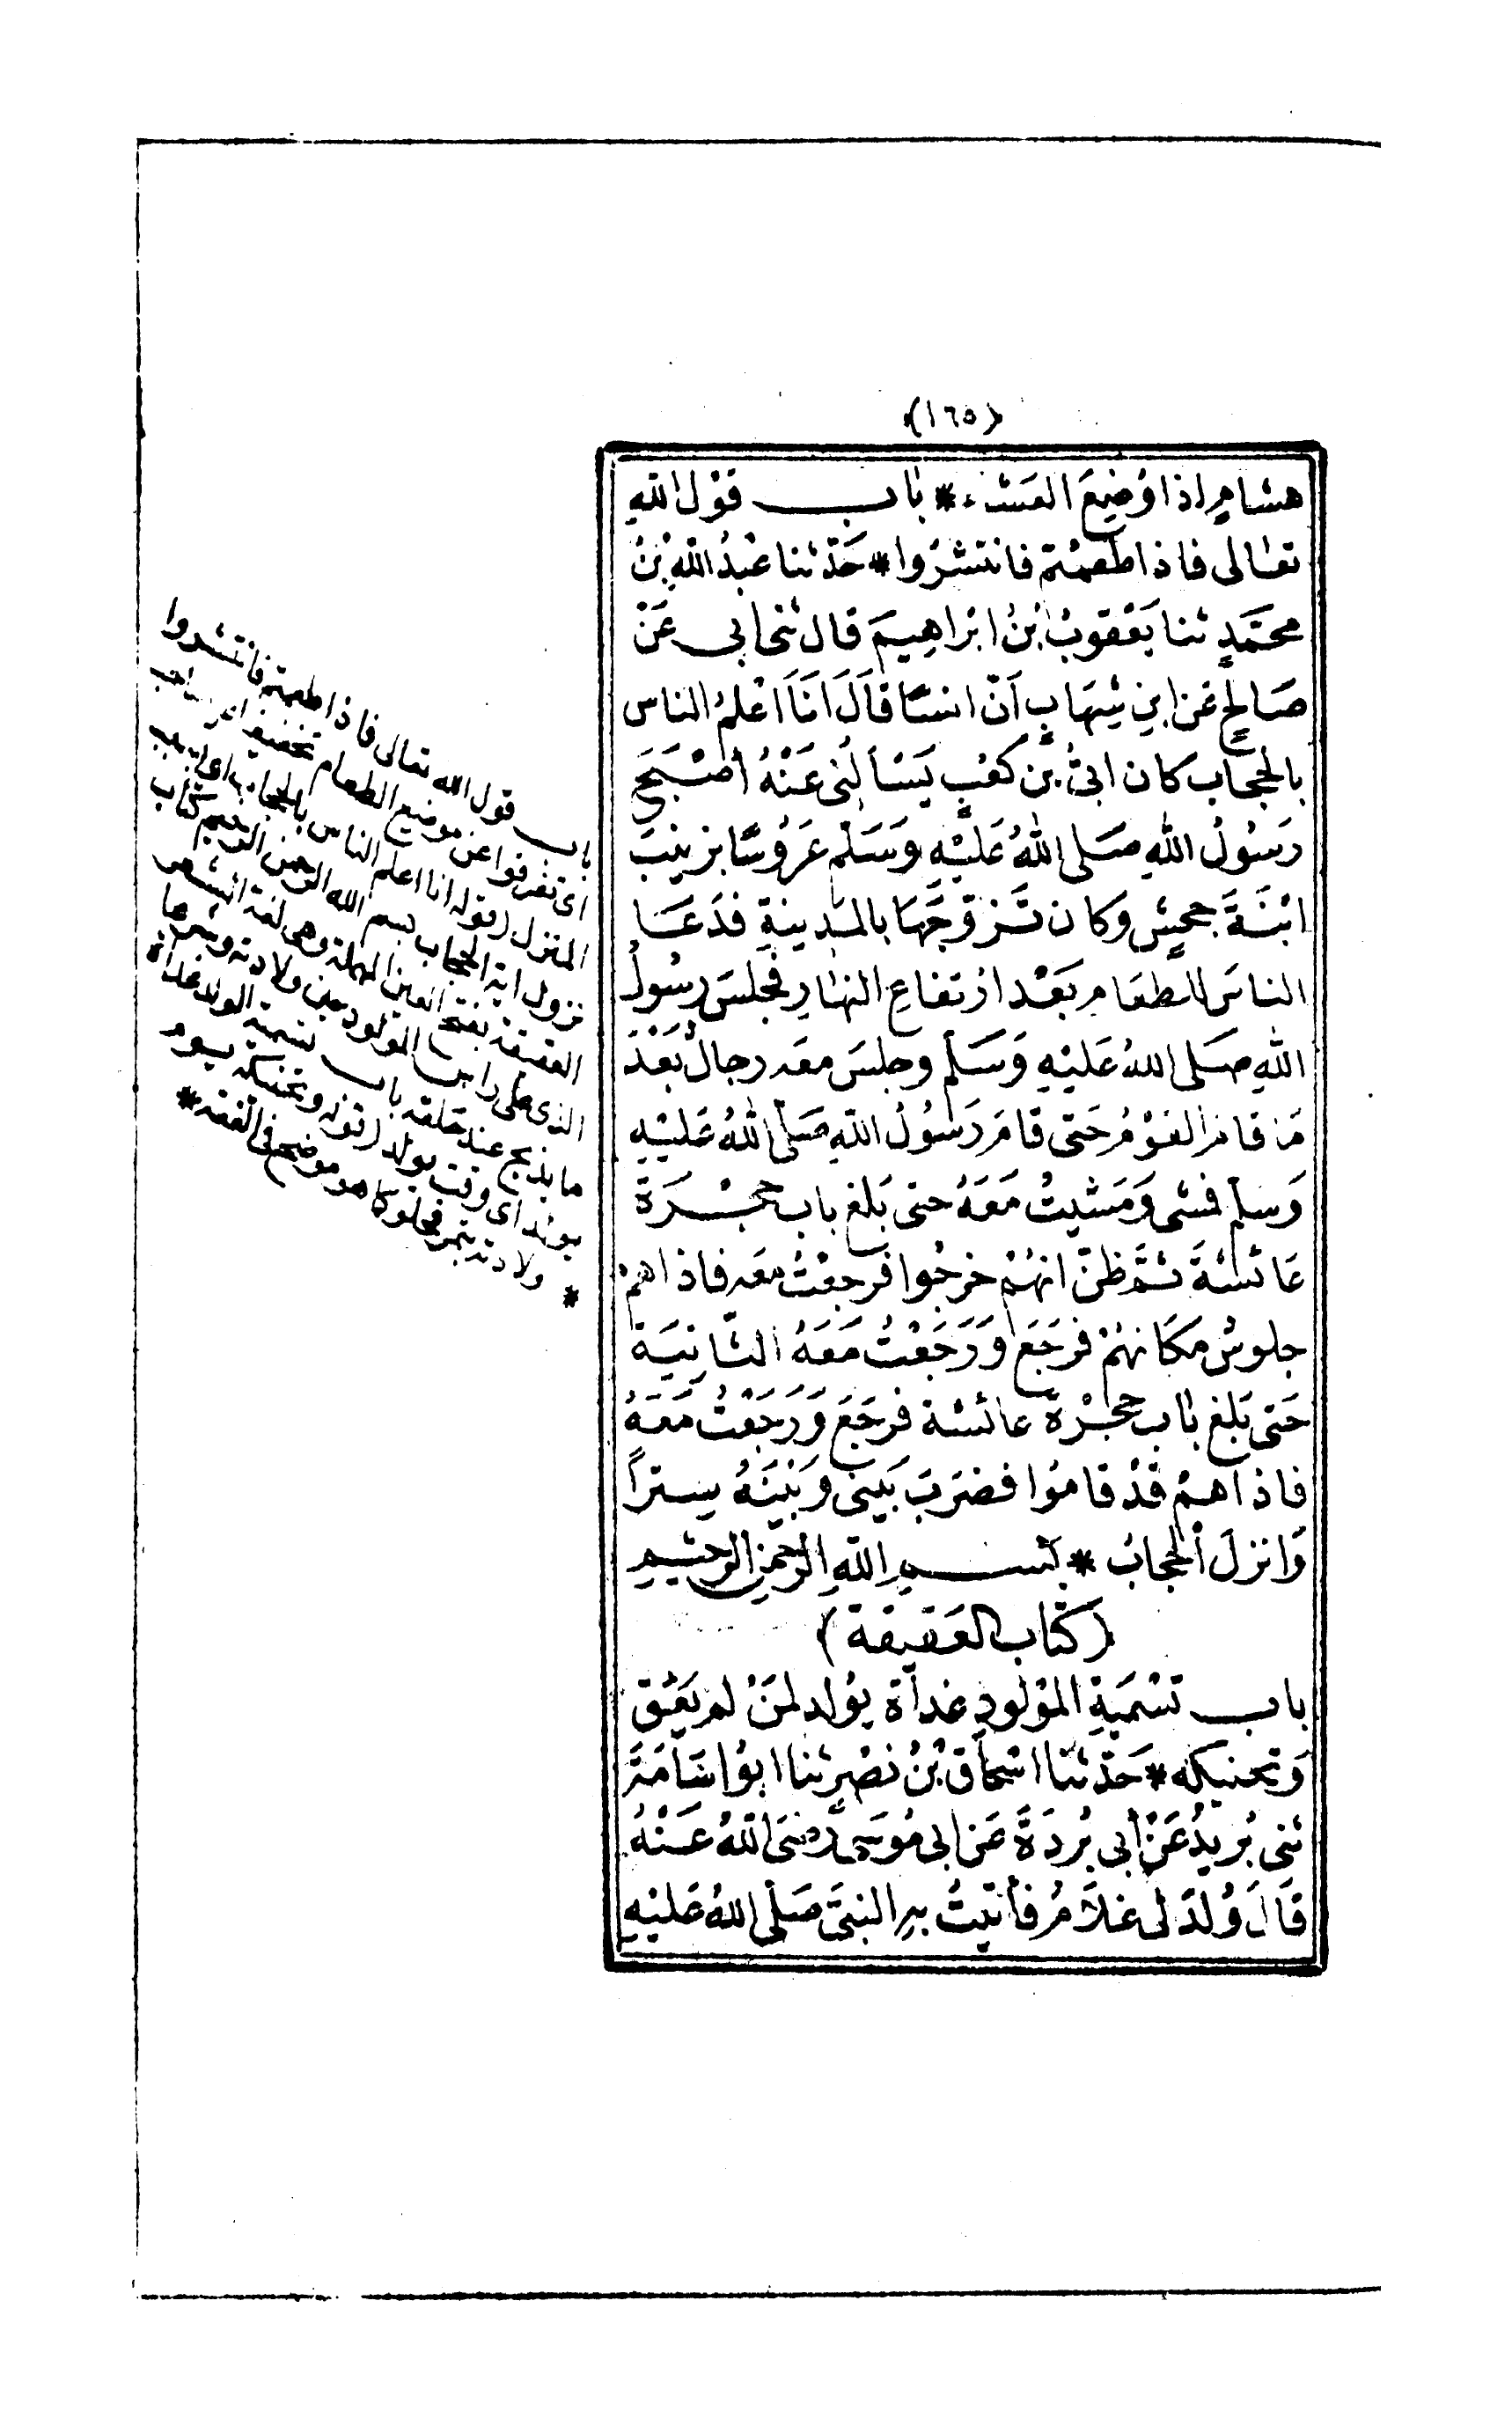 (١٦٥)
هشامٍ اذا وُضِعَ العَشاء * بٰاب قَوْل اللهِ
تعٰالى فاذا طعمْتم فانتشرُوا * حَدّثنا عَبْدُ اللهِ بْنُ
محمَّدٍ ثنا يَعْقوبُ ابْنُ ابْراهِيمَ قال ثنى ابى عَنْ
صَالحٍ عَن ابنِ شِهَابٍ اَنّ انسًا قَالَ اَنَا اعْلمُ الناس
بالحجاب كان ابىُّ بن كعْبٍ يَسْاَلُنى عَنْهُ أصْبَحَ
رَسُولُ اللهِ صَلى اللهُ عَليْهِ وَسَلم عَرُوسًا بزينبَ
ابْنَةَ جحْشٍ وكان تَزوّجَهَا بالمَدِينةِ فدَعَا
الناسَ للطعَام بَعْد ارْتفاعِ النهَارِ فجلسَ رسُولُ
اللهِ صَلى اللهُ عَليْهِ وَسَلم وجلسَ معَه رجالٌ بَعْدَ
مَا قامَ القوْمُ حَتى قامَ رَسُولُ اللهِ صَلّى اللهُ عَليْهِ
وَسلم فمشى وَمَشيتُ مَعَهُ حتى بَلغ باب حجْرَة
عَائشةَ ثمَّ ظنّ انهُمْ خرجُوا فرجعْتُ معَه فاذا هم
جلوسٌ مكَانهُمْ فرَجَعَ وَرَجَعْتُ مَعَهُ الثّانِيَة
حَتى بَلغ بٰاب حجْرة عائشة فرجَعَ وَرَجَعْتُ مَعَهُ
فاذا همْ قدْ قامُوا فضرَبَ بَينى وَبَيْنَهُ سِتراً
وَانزلَ الحجابُ * بسم اللهِ الرحمنِ الرحيمِ
(كتاب العَقيقة)
باب تسْمَيةِ المؤلودِ غداة يوُلد لمنْ لم يَعُقّ
وَتحنيكه * حَدّثنَا اسْحاق بْنُ نصْرٍ ثنا ابوُ اسَامَةَ
ثنى بُريدٌ عَنْ أبى بُردَةَ عَن ابى مُوسَى رَضىَ اللهُ عَنْهُ
قَالَ وُلدَ لى غلَامٌ فأتيْتُ بهِ النبىَّ صَلّى اللهُ عَليْهِ
باب قول الله تعالى فاذا طعمتم فانتشروا
اى تفرقوا عن موضع الطعام تخفيفا عن صاحب
المنزل (قوله انا اعلم الناس بالحجاب) اى بسبب
نزول اية الحجاب بسم الله الرحمن الرحيم كتاب
العقيقة بفتح العين المهملة وهى لغة الشعر
الذى على راس المولود حين ولادته وشرعا
ما يذبح عند حلقه باب تسمية الولد غداة
يولد اى وقت يولد (قوله وتحنيكه) يوم
* ولادته بتمر فحلو كما هو موضح فى الفقه *